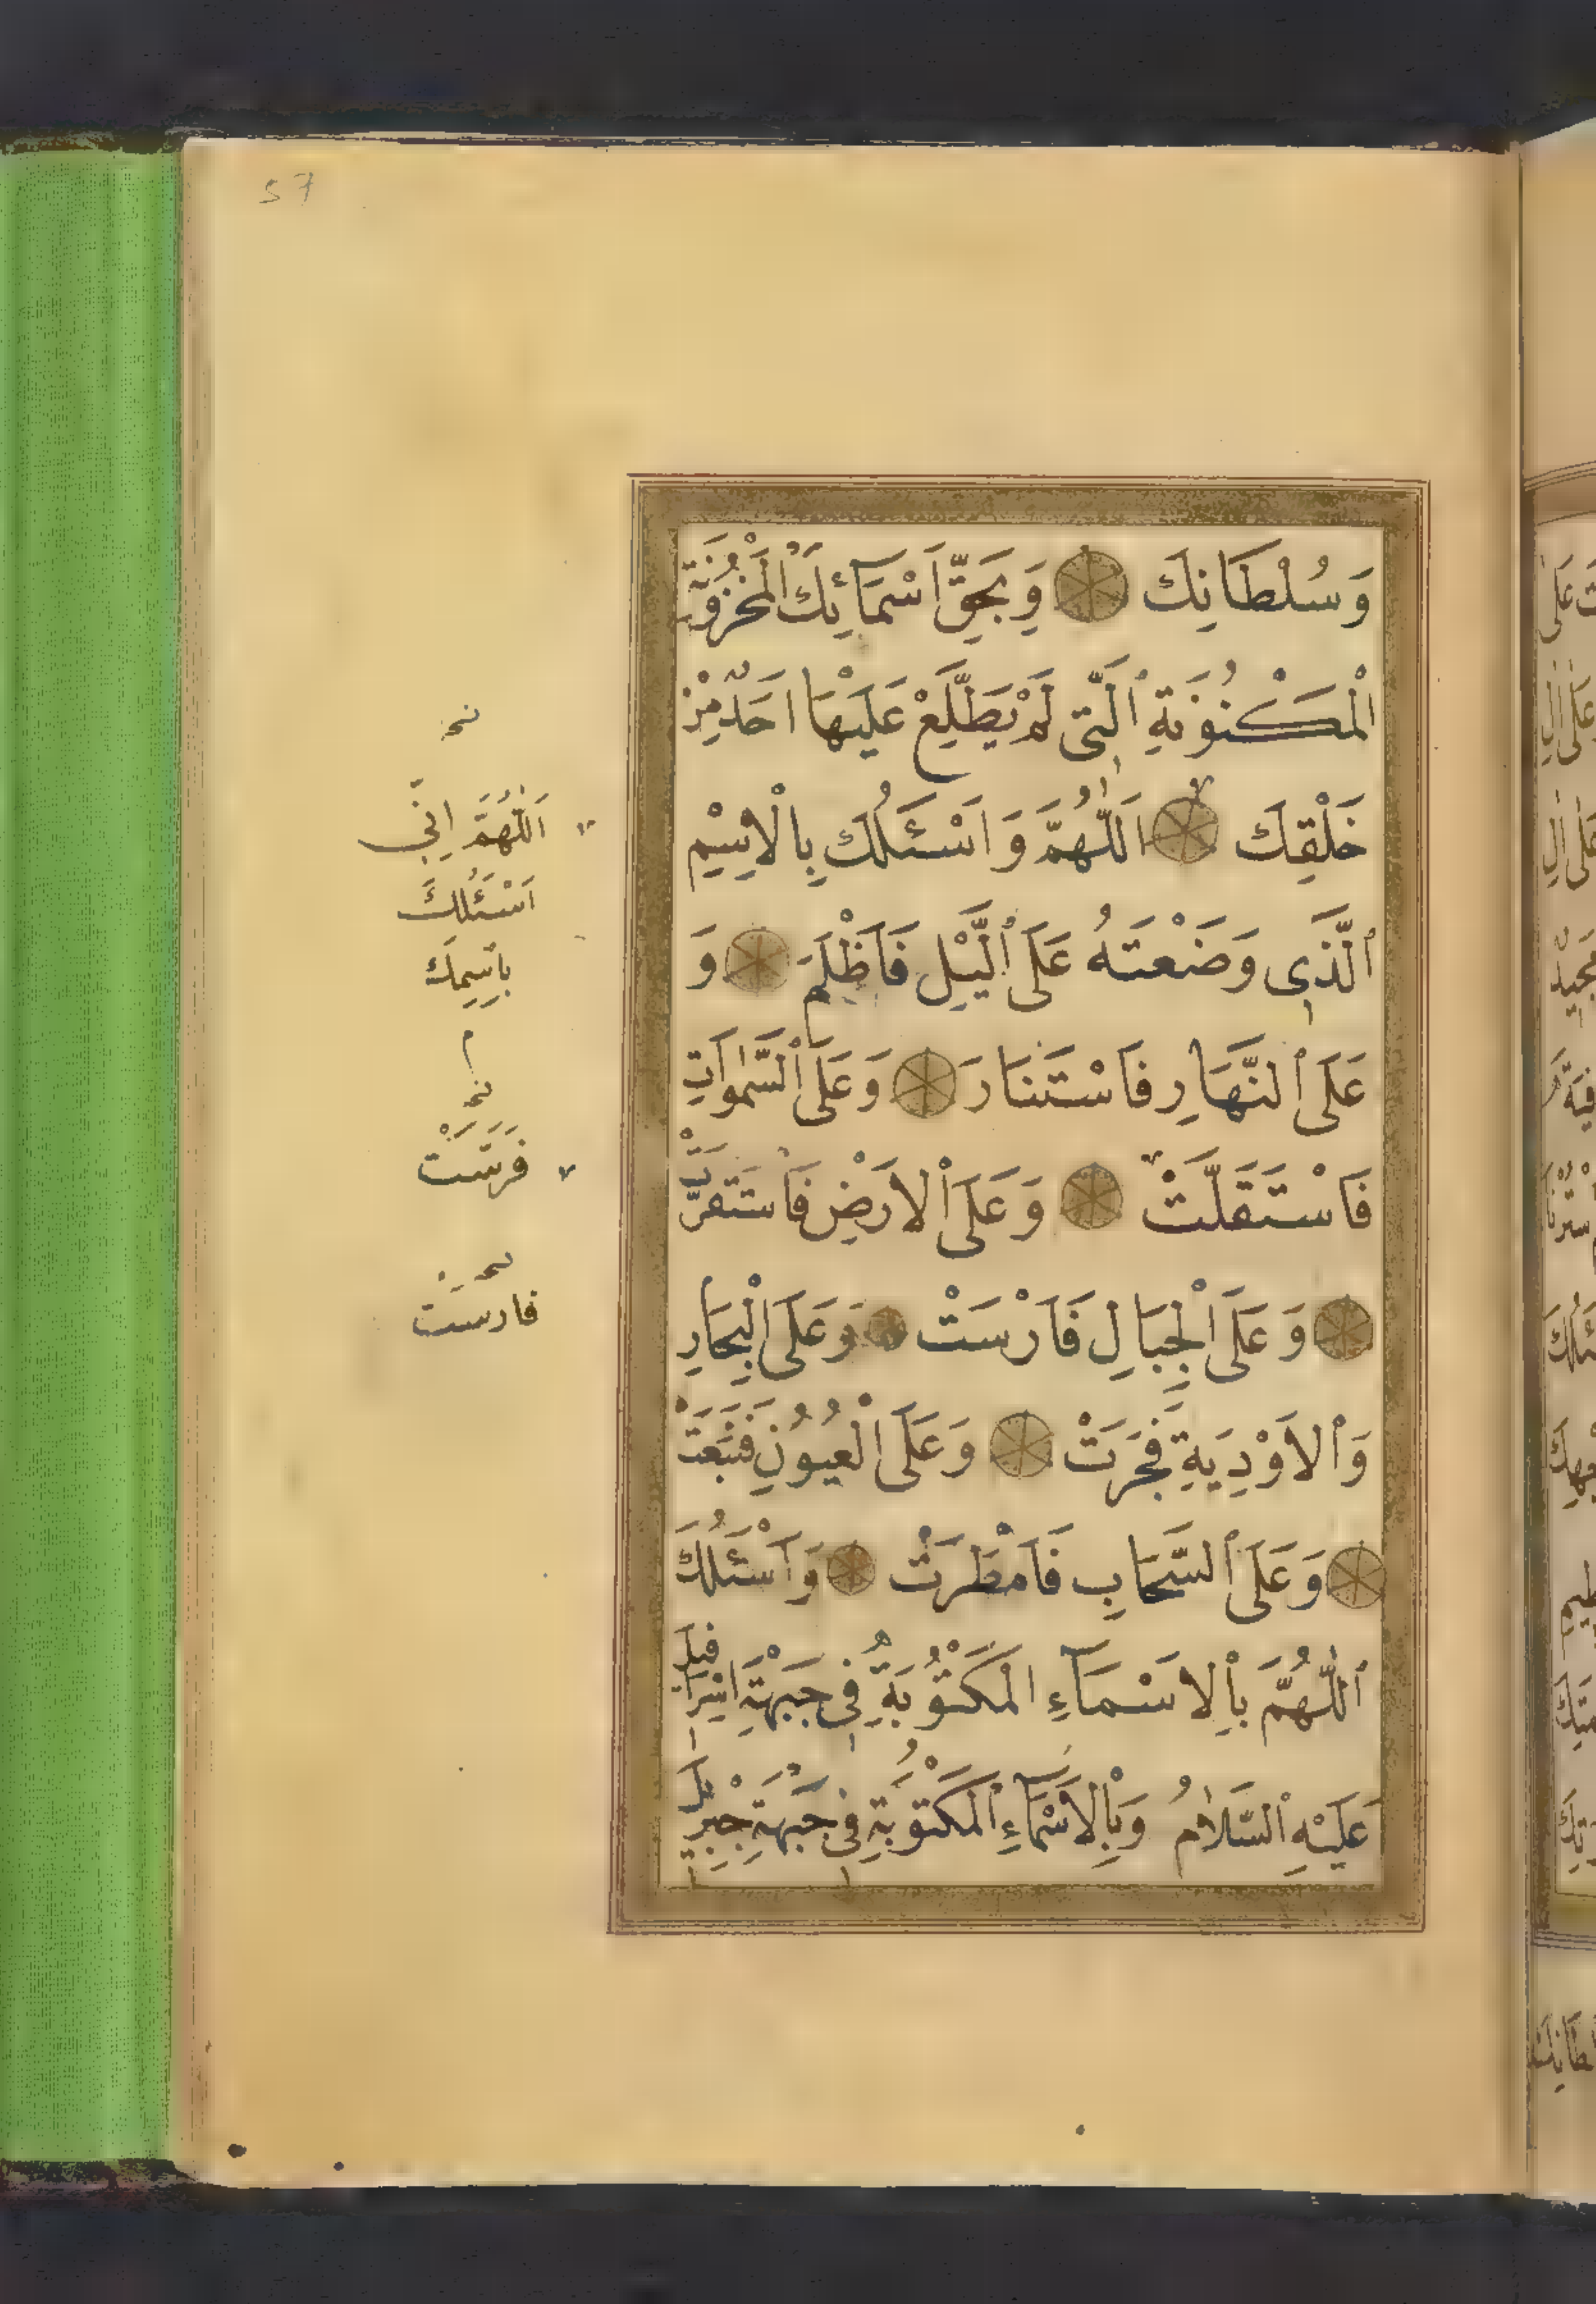 57
وَسُلْطَانِكَ وَبِحَقِّ اَسْمَائِكَ الْمَخْزُونَةِ
الْمَكْنُونَةِ ٱلَّتِى لَمْ يَطَّلِعْ عَلَيْهَا اَحَدٌ مِنْ
خَلْقِكَ اَللّٰهُمَّ وَاَسْئَلُكَ بِالْاِسْمِ
ٱلَّذِى وَضَعْتَهُ عَلَى ٱلَّيْلِ فَاَظْلَمَ وَ
عَلَى ٱلنَّهَارِ فَاسْتَنَارَ وَعَلَى ٱلسَّمٰوَاتِ
فَاسْتَقَلَّتْ وَعَلَى ٱلْاَرْضِ فَاسْتَقَرَّتْ
وَعَلَى ٱلْجِبَالِ فَاَرْسَتْ وَعَلَى الْبِحَارِ
وَٱلاَوْدِيَةِ فَجَرَتْ وَعَلَى الْعُيُونِ فَنَبَعَتْ
وَعَلَى ٱلسَّحَابِ فَاَمْطَرَتْ وَاَسْئَلُكَ
ٱللّٰهُمَّ بِاْلاَسْمَآءِ الْمَكْتُوبَةِ فِى جَبْهَةِ اِسْرَافِيلَ
عَلَيْهِ ٱلسَّلَامُ وَبِاْلاَسْمَآءِ ٱلْمَكْتُوبَةِ فِى جَبْهَةِ جِبْرِيلَ
نخه
اَللّٰهُمَّ اِنِّي
اَسْئَلُكَ
بِاسْمِكَ
م
نخه
فَرَسَتْ
نخه
فارست